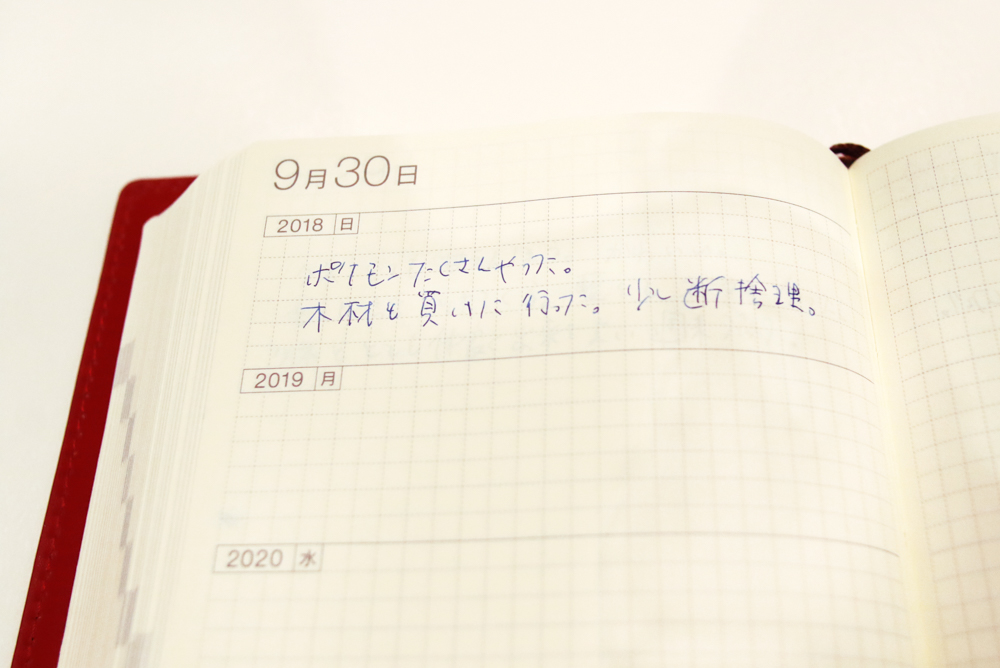 9月30日
2018 日
ポケモンたくさんやった。
木材を買いに行った。少し断捨理。
2019 月
2020 水